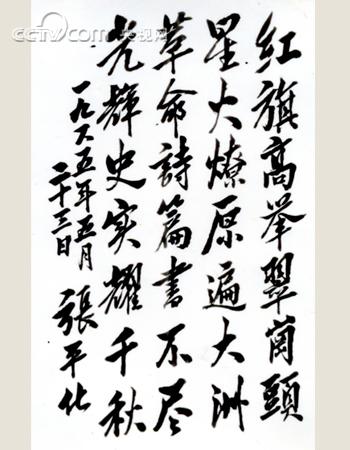 CCTV.com 央视网
红旗高举翠崗頭
星火燎原遍大洲
革命詩篇書不尽
光輝史实耀千秋
一九六五年五月
二十三日
張平化